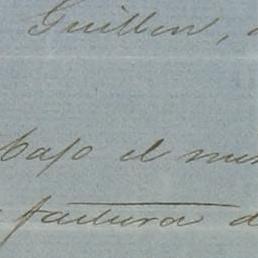 Guillen,
bajo el
factura d